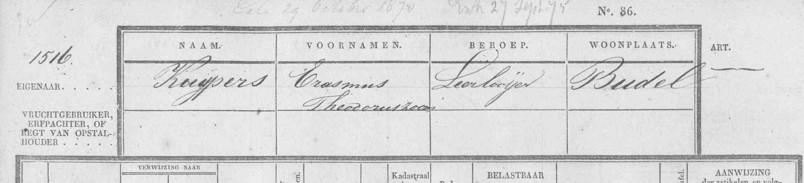 29 October 1872 27 Sept 75
No. 86.
1516.
NAAM. VOORNAMEN. BEROEP. WOONPLAATS. ART.
EIGENAAR. Kuijpers Erasmus Leerlooijer Budel —
Theodoruszoon
VRUCHTGEBRUIKER,
ERFPACHTER, OF
REGT VAN OPSTAL-
HOUDER
VERWIJZING NAAR
Kadastraal
BELASTBAAR
AANWIJZING
der artikelen en volg-